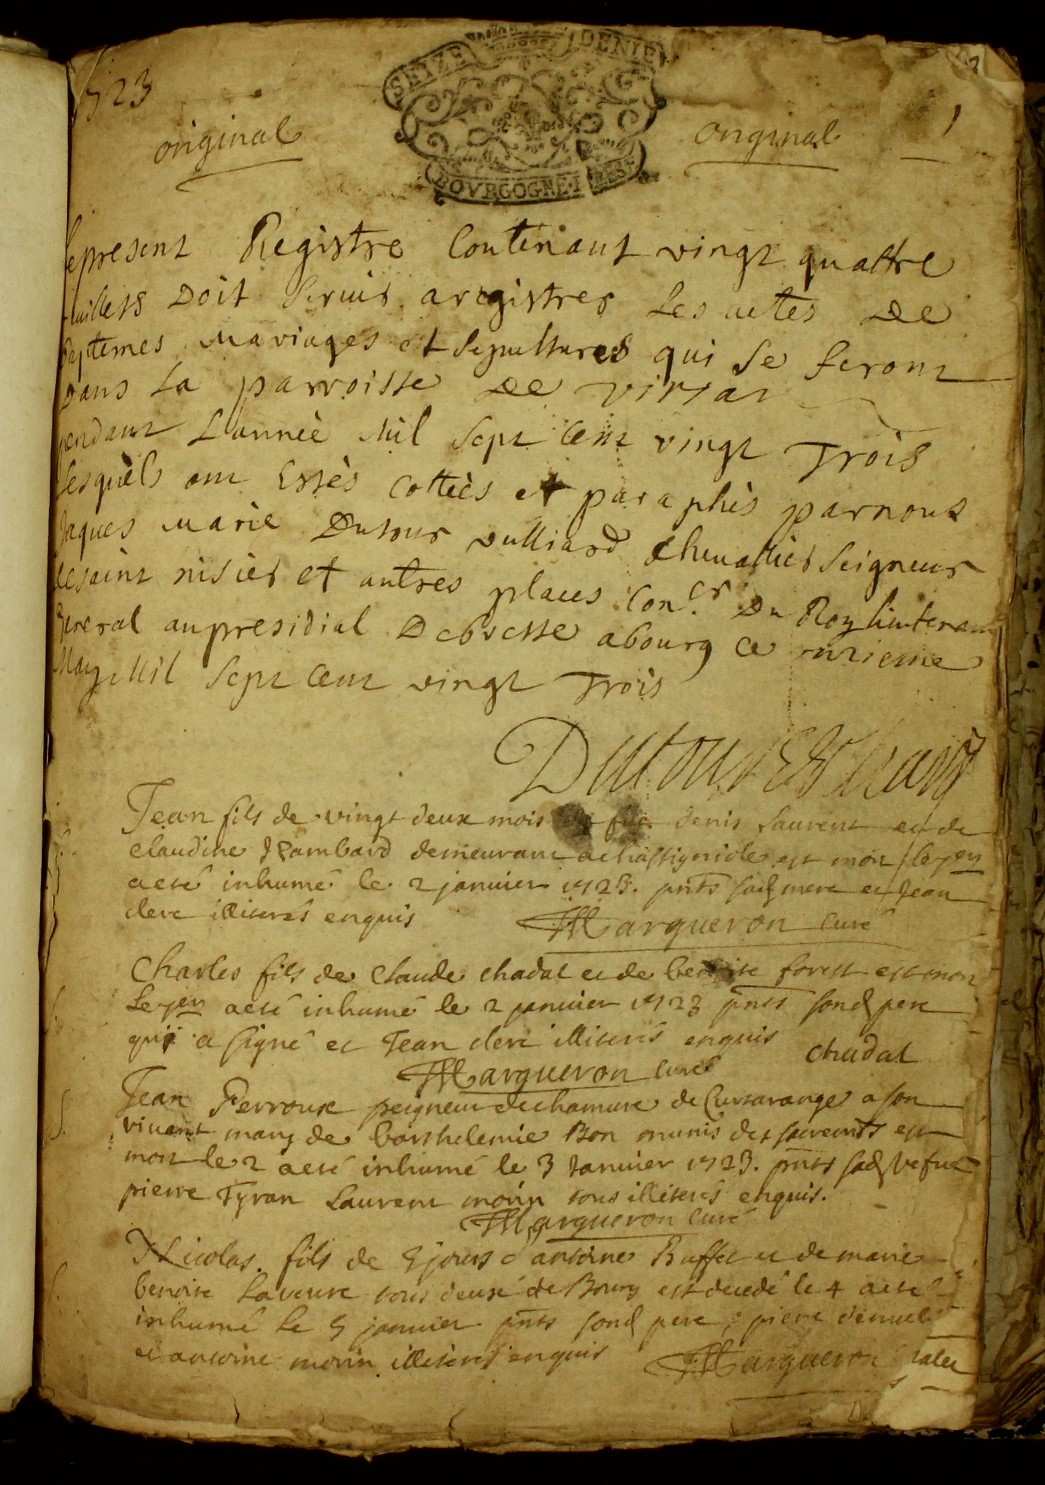 1723
SEIZE DENIE
original
original
1
BOVRGOGNE
Le present Registre Contenant vingt quattre
feuillets Doit servir a registrer Les actes De
Baptemes Mariages et sepultures qui se feront
Dans La parroisse De viriat
pendant L'année Mil sept cent vingt Trois
lesquels ont Estés cottés et paraphés par nous
Jaques Marie Dutour vulliard chevallier seigneur
de saint nisier et autres places con.er Du Roy lieutenant
general au presidial De bresse a bourg ce onzieme
May Mil sept cent vingt Trois
Dutour
Jean fils de vingt deux mois de feu denis Laurent et de
claudine Rambard demeurant a chassignole est mort le 1er
a eté inhumé le 2 janvier 1723. pnts sad mere et Jean
clerc illiterés enquis Margueron curé
Charles fils de Claude chadal et de benoite forest est mort
Le 1er a eté inhumé le 2 janvier 1723 pnts sond pere
qui a signé et Jean clerc illiterés enquis chadal
Margueron curé
Jean Perroux peigneur de chanvre de Cursarange a son
vivant mary de barthelemie Bon munis des sacremts est
mort le 2 a eté inhumé le 3 Janvier 1723. pnts sad vefve
pierre Tyran Laurent morin tous illiterés enquis.
Margueron curé
Nicolas fils de 5 jours d'antoine Buffet et de marie
benoite Laveure tous deux de Bourg est decedé le 4 a eté
inhumé le 5 janvier pnts sond pere, piere
et antoine morin illiterés enquis Margueron